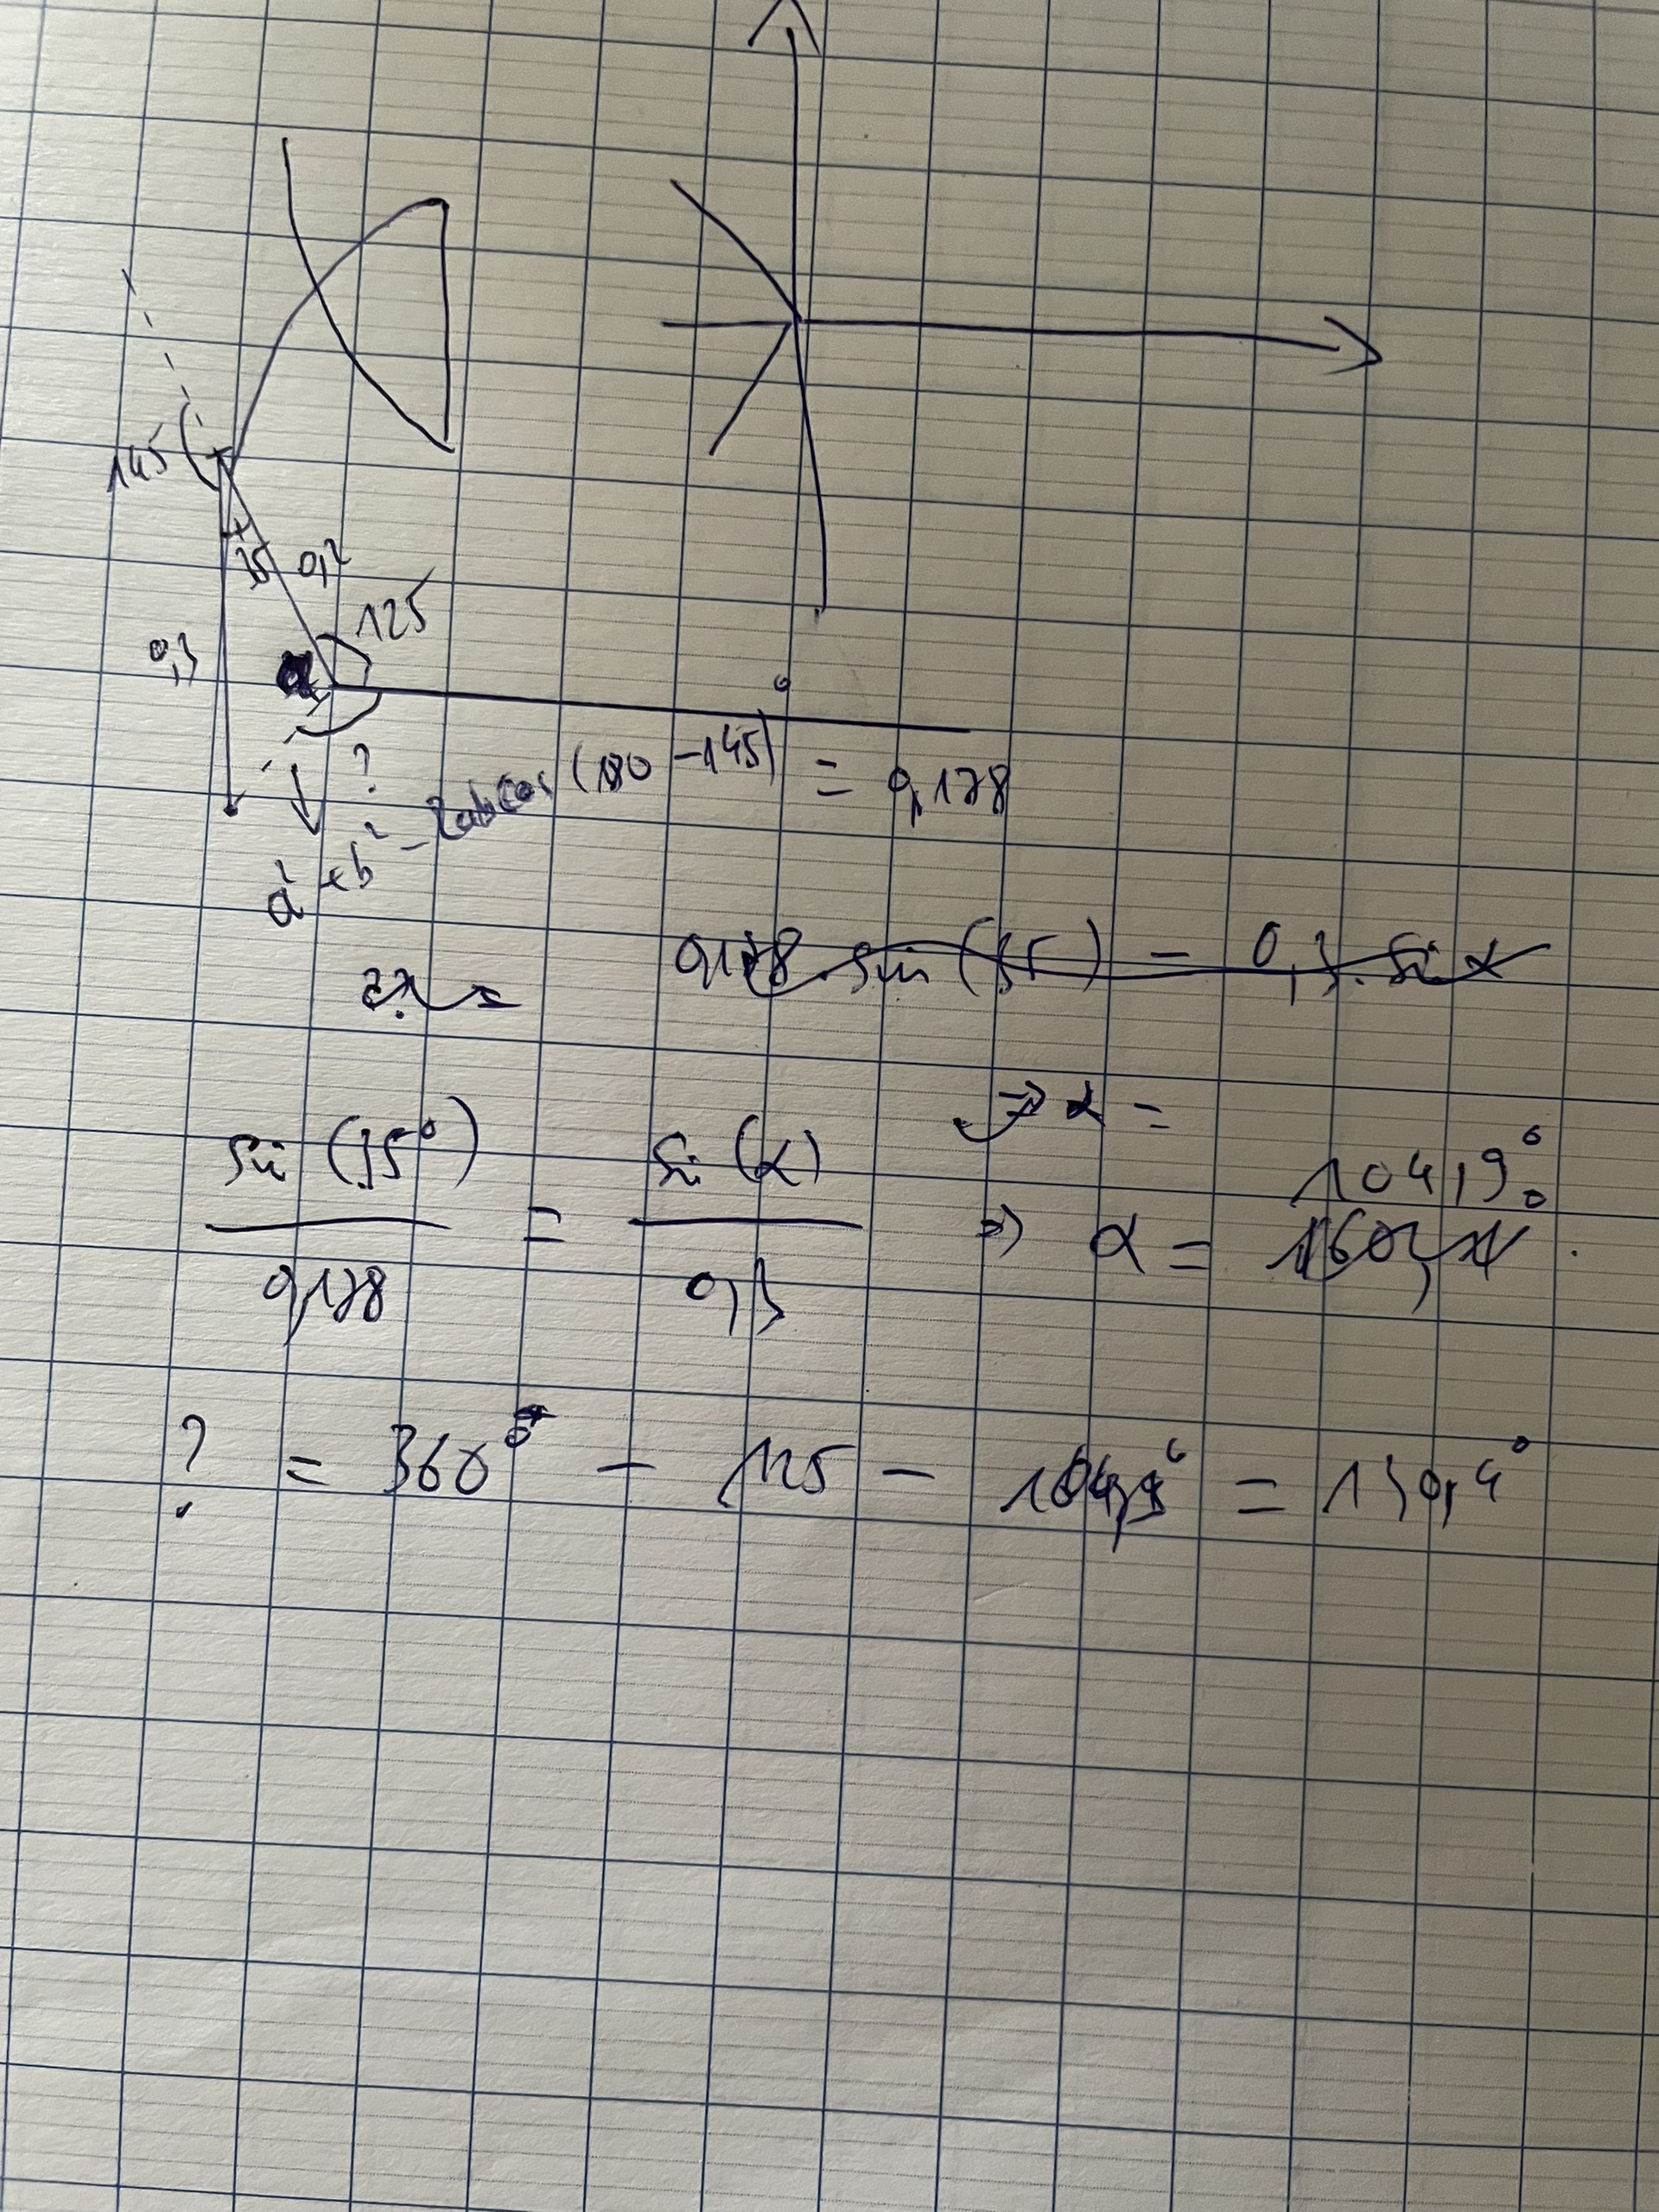 145
35
0,2
125
0,3
α
?
a² + b² - 2ab cos (180 - 145) = 0,178
0,178 . sin (35) = 0,3 . sin α
⇒ α =
sin (35°) / 0,178 = sin (α) / 0,3 ⇒ α = 104,9°
? = 360° - 125 - 104,9° = 130,4°